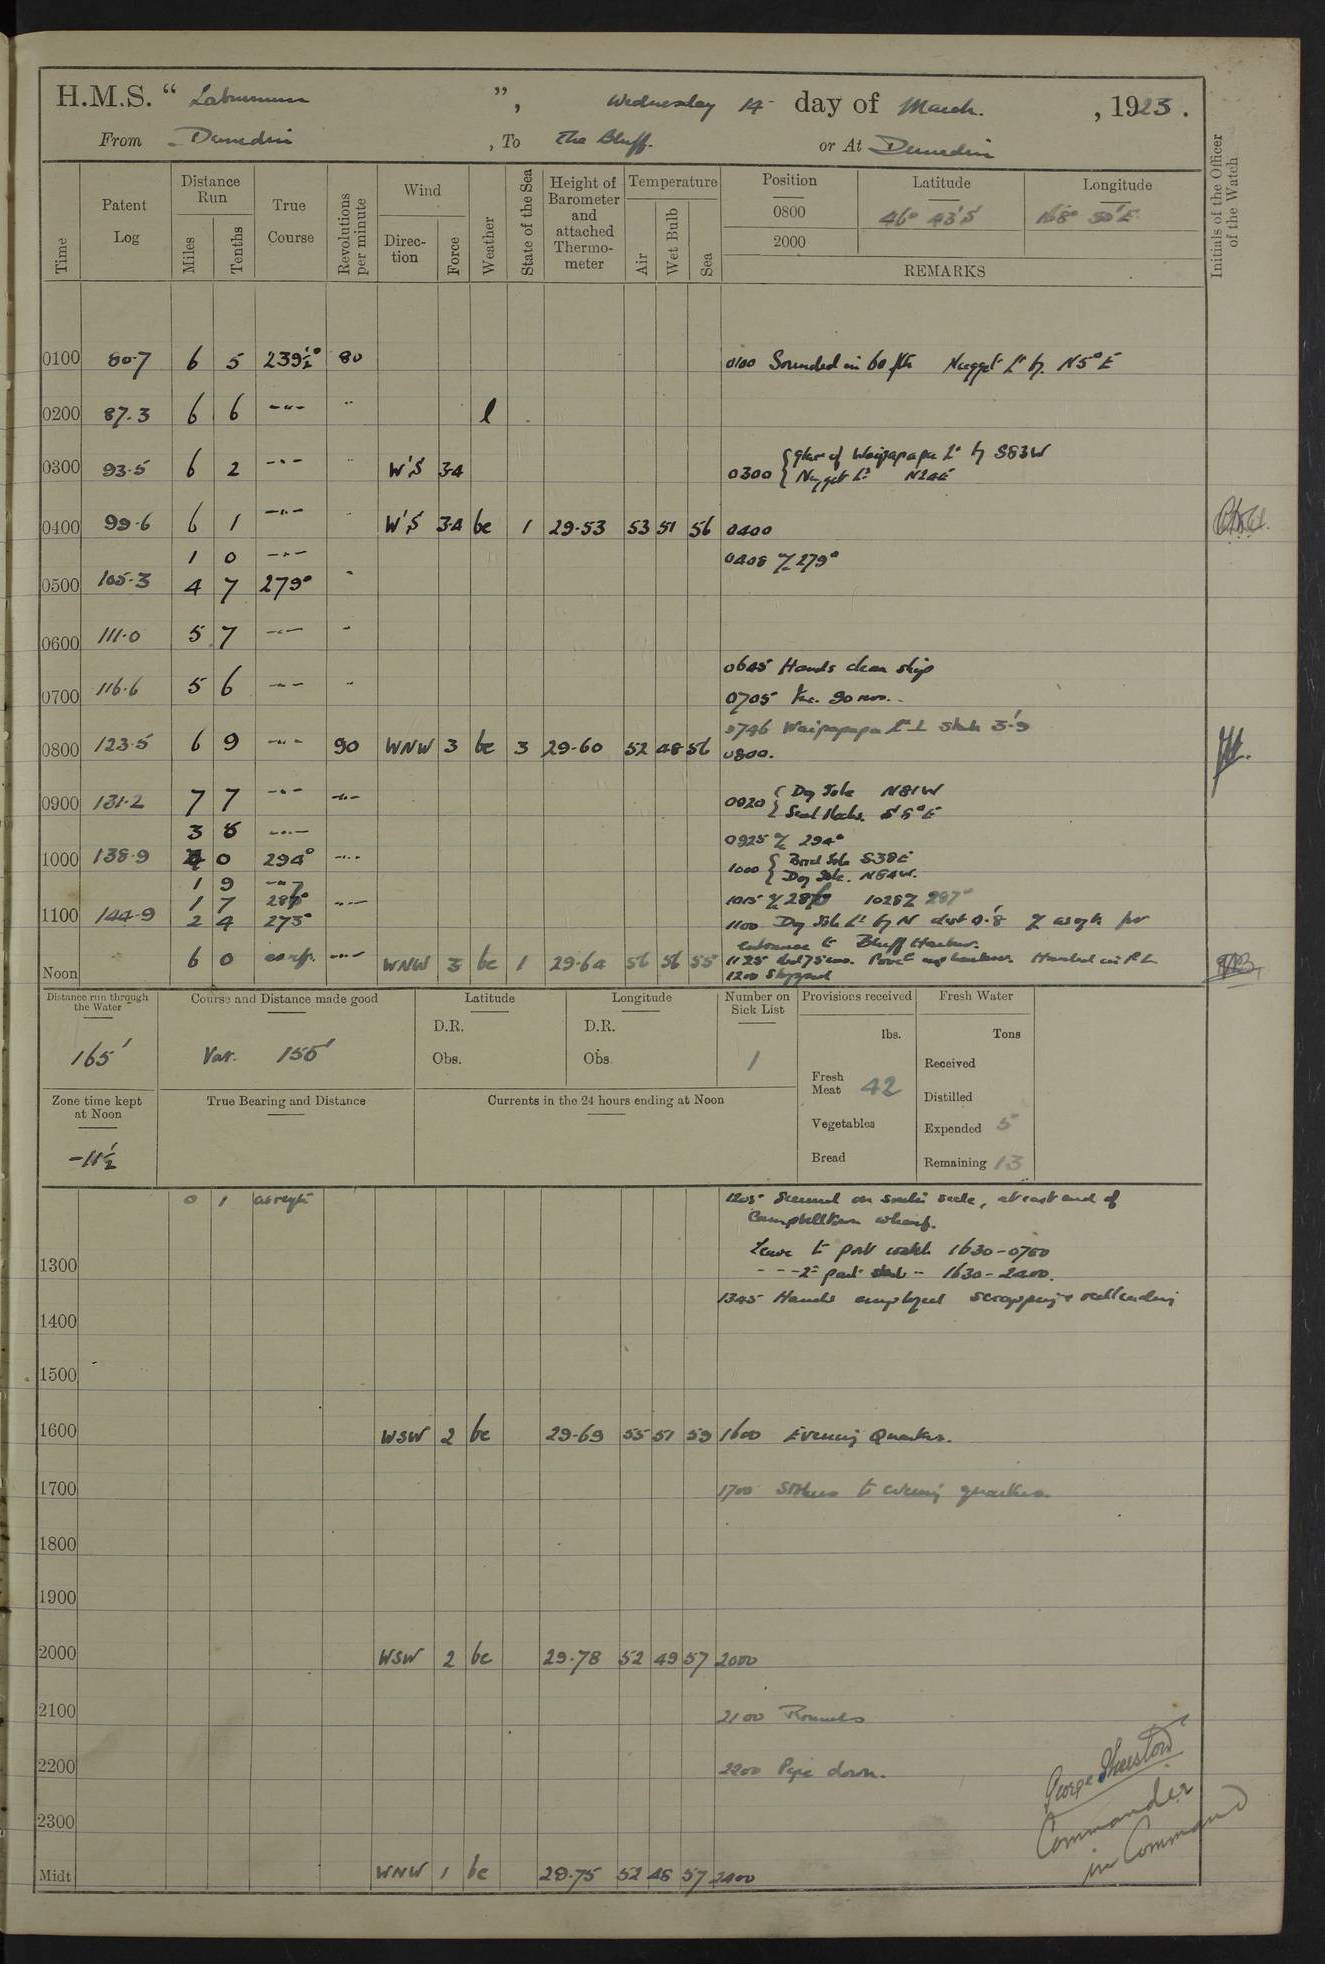 H.M.S. “ Laburnum ”, Wednesday 14 day of March. , 1923 .
From Dunedin , To The Bluff. or At Dunedin
Time Patent Log Distance Run Miles Tenths True Course Revolutions per minute Wind Direc- tion Force Weather State of the Sea Height of Barometer and attached Thermo- meter Temperature Air Wet Bulb Sea Position Latitude Longitude Initials of the Officer of the Watch
0800 46° 43'S 168° 50'E
2000
REMARKS
0100 80.7 6 5 239½° 80 0100 Sounded in 60 fth Nugget Lt by. N5°E
0200 87.3 6 6 --"-- " l
0300 93.5 6 2 --"-- " W'S 3-4 0300 { glare of Waipapapa Lt by S83W
{ Nugget Lt N24E
0400 99.6 6 1 --"-- " W'S 3-4 bc 1 29.53 53 51 56 0400
1 0 --"-- 0408 % 279°
0500 105.3 4 7 279° "
0600 111.0 5 7 --"-- "
0645 Hands clean ship
0700 116.6 5 6 --"-- " 0705 Inc. 90 revs.
0746 Waipapapa Lt ⊥ 3'.9
0800 123.5 6 9 --"-- 90 WNW 3 bc 3 29.60 52 48 56 0800.
0900 131.2 7 7 --"-- --"-- 0920 { Dog Isle N81W
{ Seal Rocks. S5°E
3 8 --"-- 0925 % 294°
1000 138.9 4 0 294° --"-- 1000 { Bird Isle S38E
{ Dog Isle. N64W.
1 9 --"--
1 7 286° --"-- 1015 % 286 1028 % 287°
1100 144.9 2 4 273° 1100 Dog Isle Lt by N dist 0'.8 % as reqte for
entrance to Bluff Harbour.
6 0 as reqte. --"-- 1125 Proced up harbour. Handed in P.L.
Noon WNW 3 bc 1 29.64 56 56 55 1200 Stopped
Distance run through the Water Course and Distance made good Latitude Longitude Number on Sick List Provisions received Fresh Water
D.R. D.R. lbs. Tons
165' Var. 155' Obs. Obs. 1 Fresh Meat 42 Received
Distilled
Zone time kept at Noon True Bearing and Distance Currents in the 24 hours ending at Noon Vegetables Expended 5
-11½ Bread Remaining 13
0 1 as reqte 1205 Secured on south side, at east end of
Campbelltown wharf.
Leave to port watch 1630-0700
1300 - - - 2nd part - 1630-2400.
1345 Hands employed scrapping & redleading
1400
1500
1600 WSW 2 bc 29.69 55 51 59 1600 Evening Quarters.
1700 1700 Stokers to evening quarters.
1800
1900
2000 WSW 2 bc 29.78 52 49 57 2000
2100 2100 Rounds
2200 2200 Pipe down.
George Sheeston
Commander
in Command
2300
Midt WNW 1 bc 29.75 52 48 57 2400